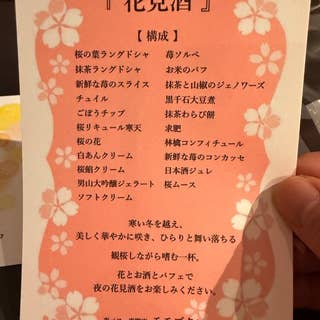 『 花見酒 』
【 構成 】
桜の葉ラングドシャ
抹茶ラングドシャ
新鮮な苺のスライス
チュイル
ごぼうチップ
桜リキュール寒天
桜の花
白あんクリーム
桜餡クリーム
男山大吟醸ジェラート
ソフトクリーム
苺ソルベ
お米のパフ
抹茶と山椒のジェノワーズ
黒千石大豆煮
抹茶わらび餅
求肥
林檎コンフィチュール
新鮮な苺のコンカッセ
日本酒ジュレ
桜ムース
寒い冬を越え、
美しく華やかに咲き、ひらりと舞い落ちる
観桜しながら嗜む一杯。
花とお酒とパフェで
夜の花見酒をお楽しみください。